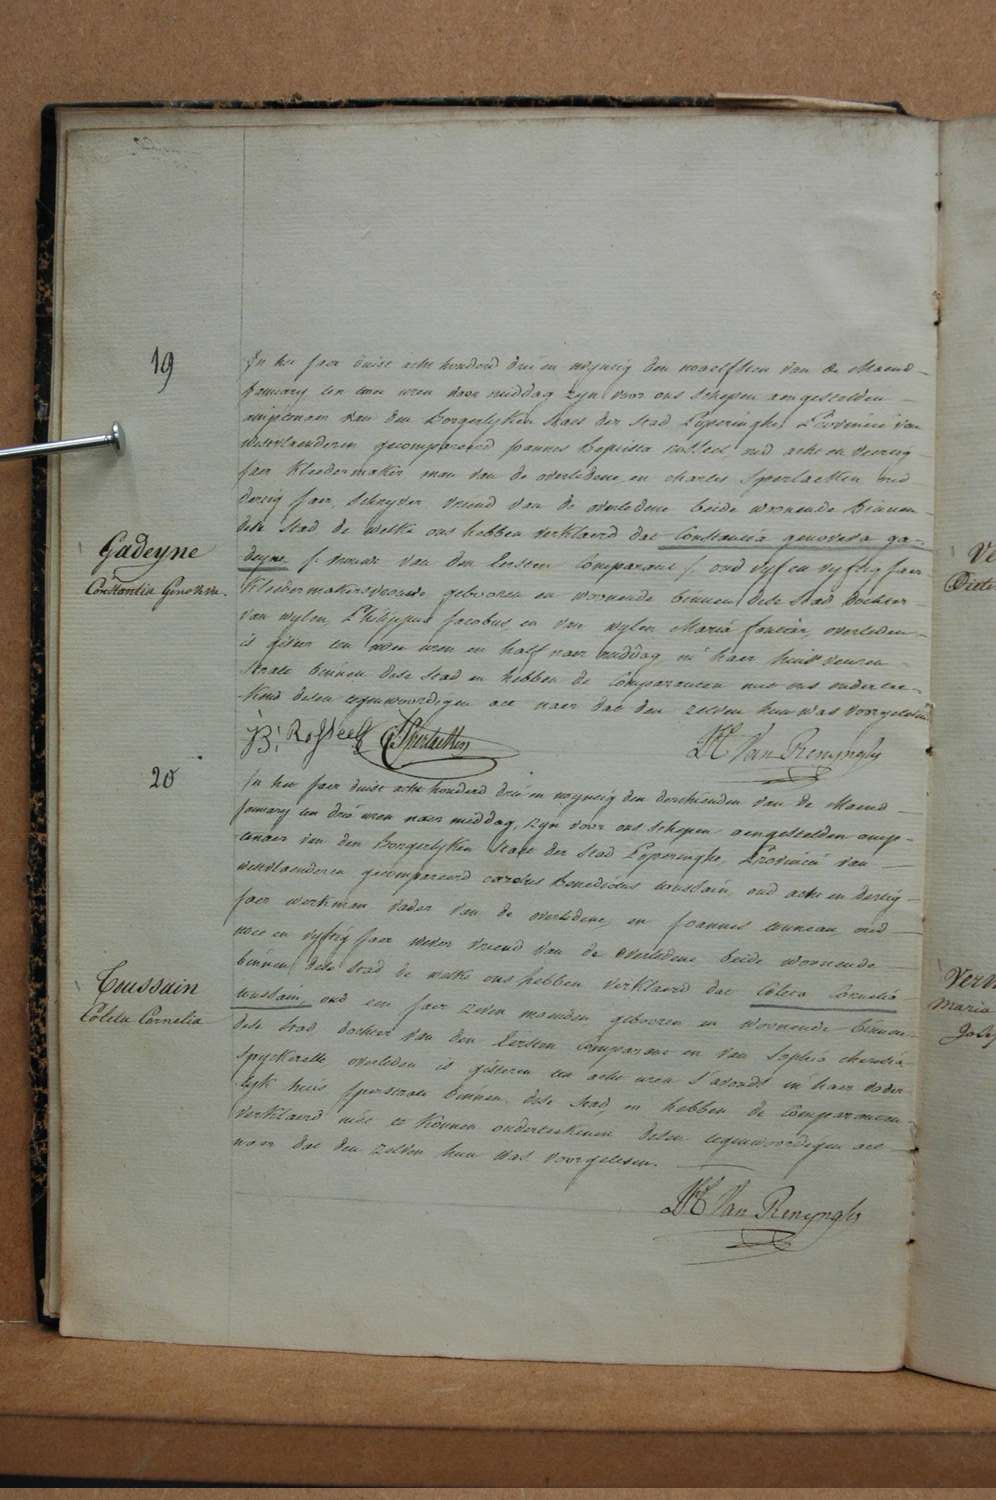 19
In het jaer duist acht honderd drie en negensig den twaelfsten van de Maend
January ten twee uren naer middag zyn voor ons schepen aengestelden
amptenaer van den Borgerlyken staet der stad Poperinghe Provincie van
westvlaenderen gecompareerd Joannes Baptista Rosseel oud acht en veertig
jaer kleedermaker man van de overledene en charles Sperlaecken oud
dertig jaer, schryver vriend van de overledene beide woonende Binnen
dese stad de welke ons hebben verklaerd dat Constantia genoveva ga-
Gadeyne
deyne /: vrouw van den Eersten Comparant :/ oud vyf en vyftig jaer
Constantia Genoveva.
kleedermakersvrouw gebooren en woonende binnen dese stad dochter
van wylen Philippus Jacobus en van wylen Maria overleden
is gister een uren en half naer middag in haer huis
strate binnen dese stad en hebben de Comparanten met ons onderte-
kend desen tegenwoordigen act naer dat den zelven hun was voorgelesen
J: B: Rosseel C Sperlaecken Van Renynghe
20
In het jaer duist acht honderd drie en negensig den derthienden van de Maend
January ten drie uren naer middag, zyn voor ons schepen aengestelden amp-
tenaer van den Borgerlyken staet der stad Poperinghe, Provincie van
westvlaenderen gecompareerd carolus Benedictus toussain, oud acht en dertig
jaer werkman vader van de overledene, en Joannes oud
twee en vyftig jaer wever vriend van de overledene beide woonende
binnen dese stad de welke ons hebben verklaerd dat Coleta Cornelia
Toussain
toussain, oud een jaer zeven maenden gebooren en woonende binnen
Coleta Cornelia
dese stad, dochter van den Eersten Comparant en van Sophia
Spyckerelle, overleden is gisteren ten acht uren s'avonds in haer vader-
lyk huis strate binnen dese stad en hebben de Comparanten
verklaerd niet te konnen onderteekenen desen tegenwoordigen act
naer dat den zelven hun was voorgelesen.
Van Renynghe